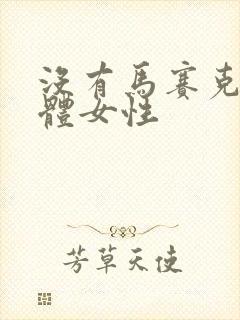 沒有馬賽克
體女性
芳草天使